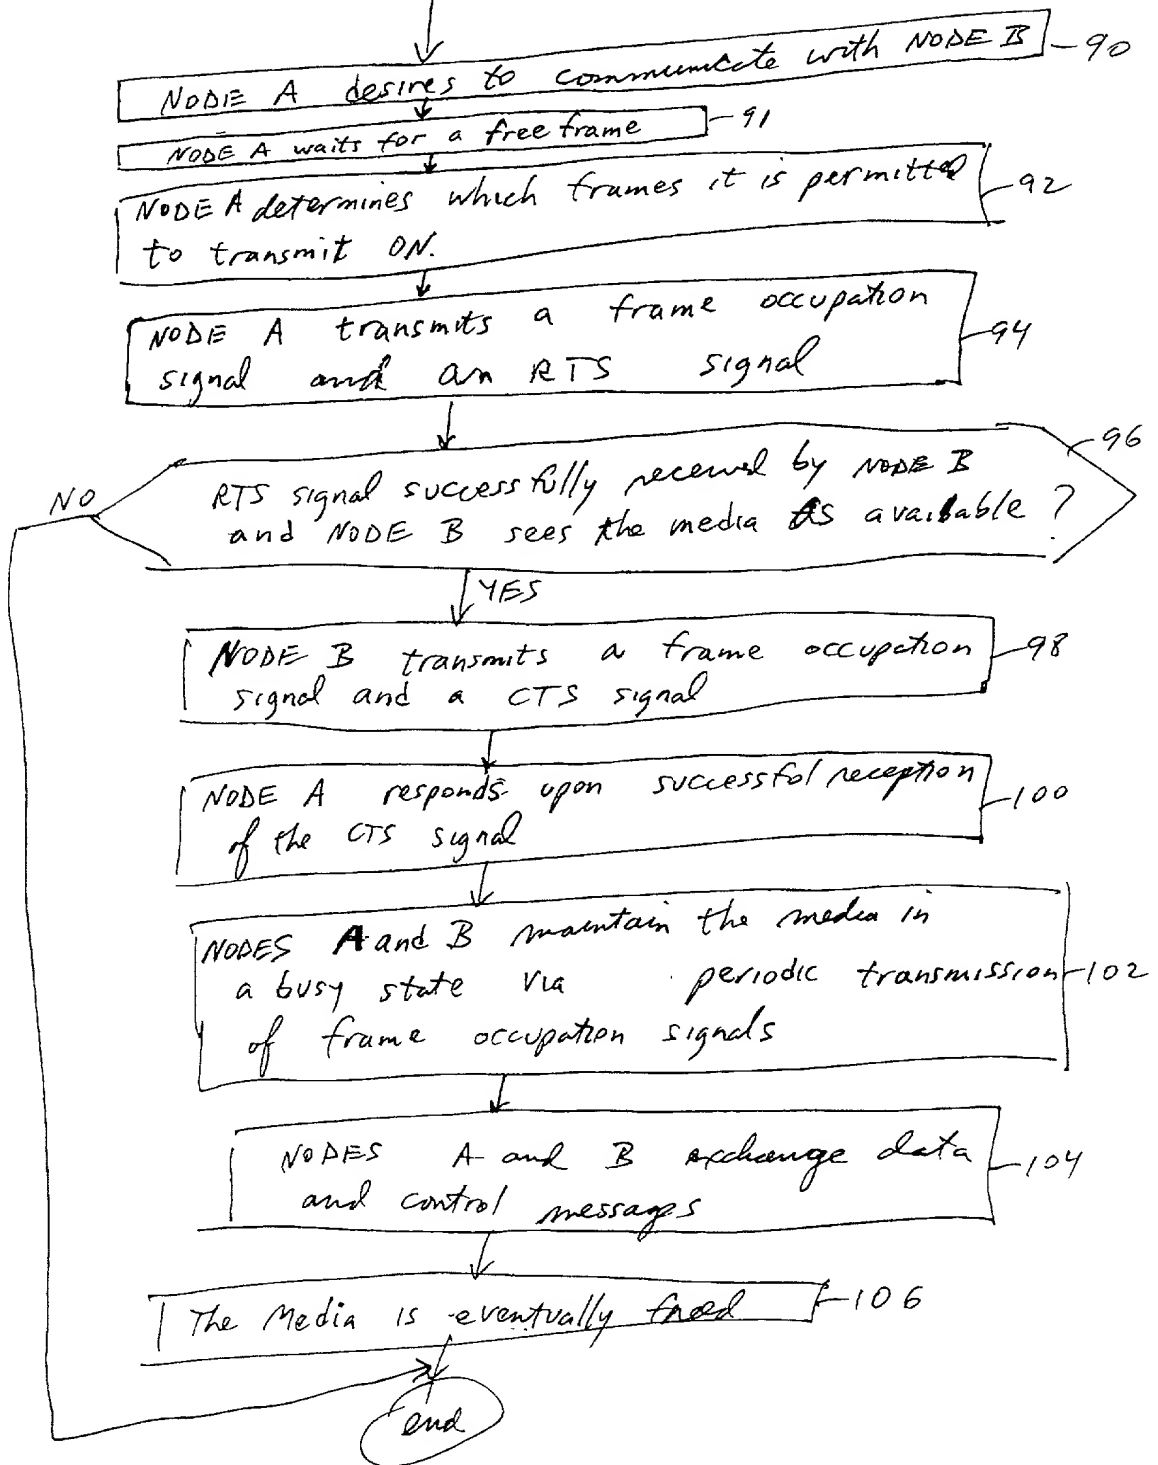 NODE A desires to communicate with NODE B 90
NODE A waits for a free frame 91
NODE A determines which frames it is permitted 92
to transmit ON.
NODE A transmits a frame occupation
signal and an RTS signal 94
96
NO RTS signal successfully received by NODE B
and NODE B sees the media AS available ?
YES
NODE B transmits a frame occupation 98
signal and a CTS signal
NODE A responds upon successful reception 100
of the CTS signal
NODES A and B maintain the media in
a busy state via periodic transmission 102
of frame occupation signals
NODES A and B exchange data 104
and control messages
The Media is eventually freed 106
end